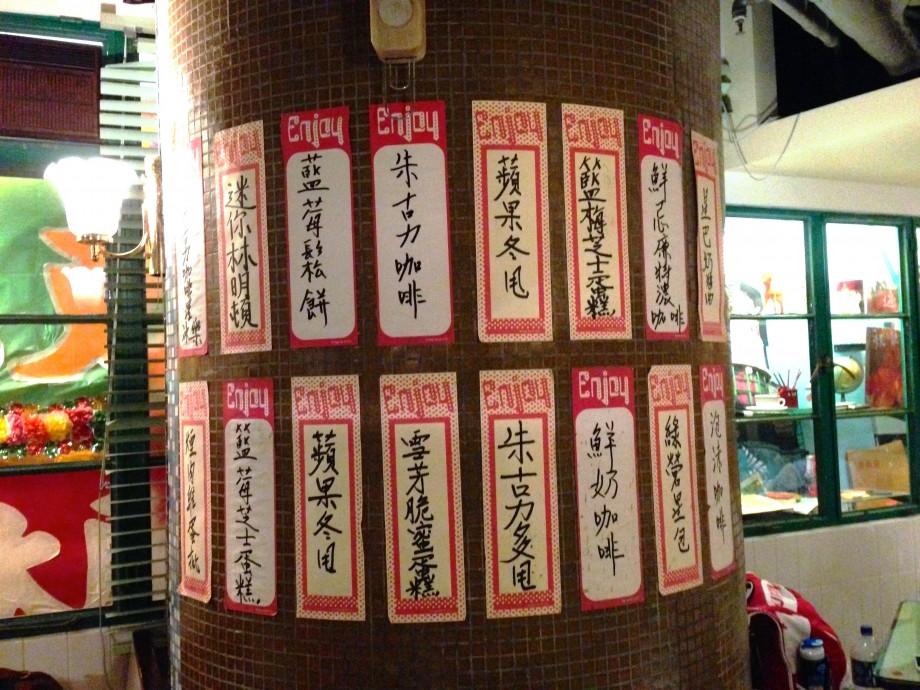 Enjoy
迷你林明頓
Enjoy
藍莓鬆餅
Enjoy
朱古力咖啡
Enjoy
蘋果冬甩
Enjoy
籃梅芝士蛋糕
Enjoy
鮮忌廉特濃咖啡
Enjoy
煙肉雞蛋批
Enjoy
籃莓芝士蛋糕
Enjoy
蘋果冬甩
Enjoy
雪芽脆蜜蛋糕
Enjoy
朱古力多甩
Enjoy
鮮奶咖啡
Enjoy
Enjoy
泡沫咖啡